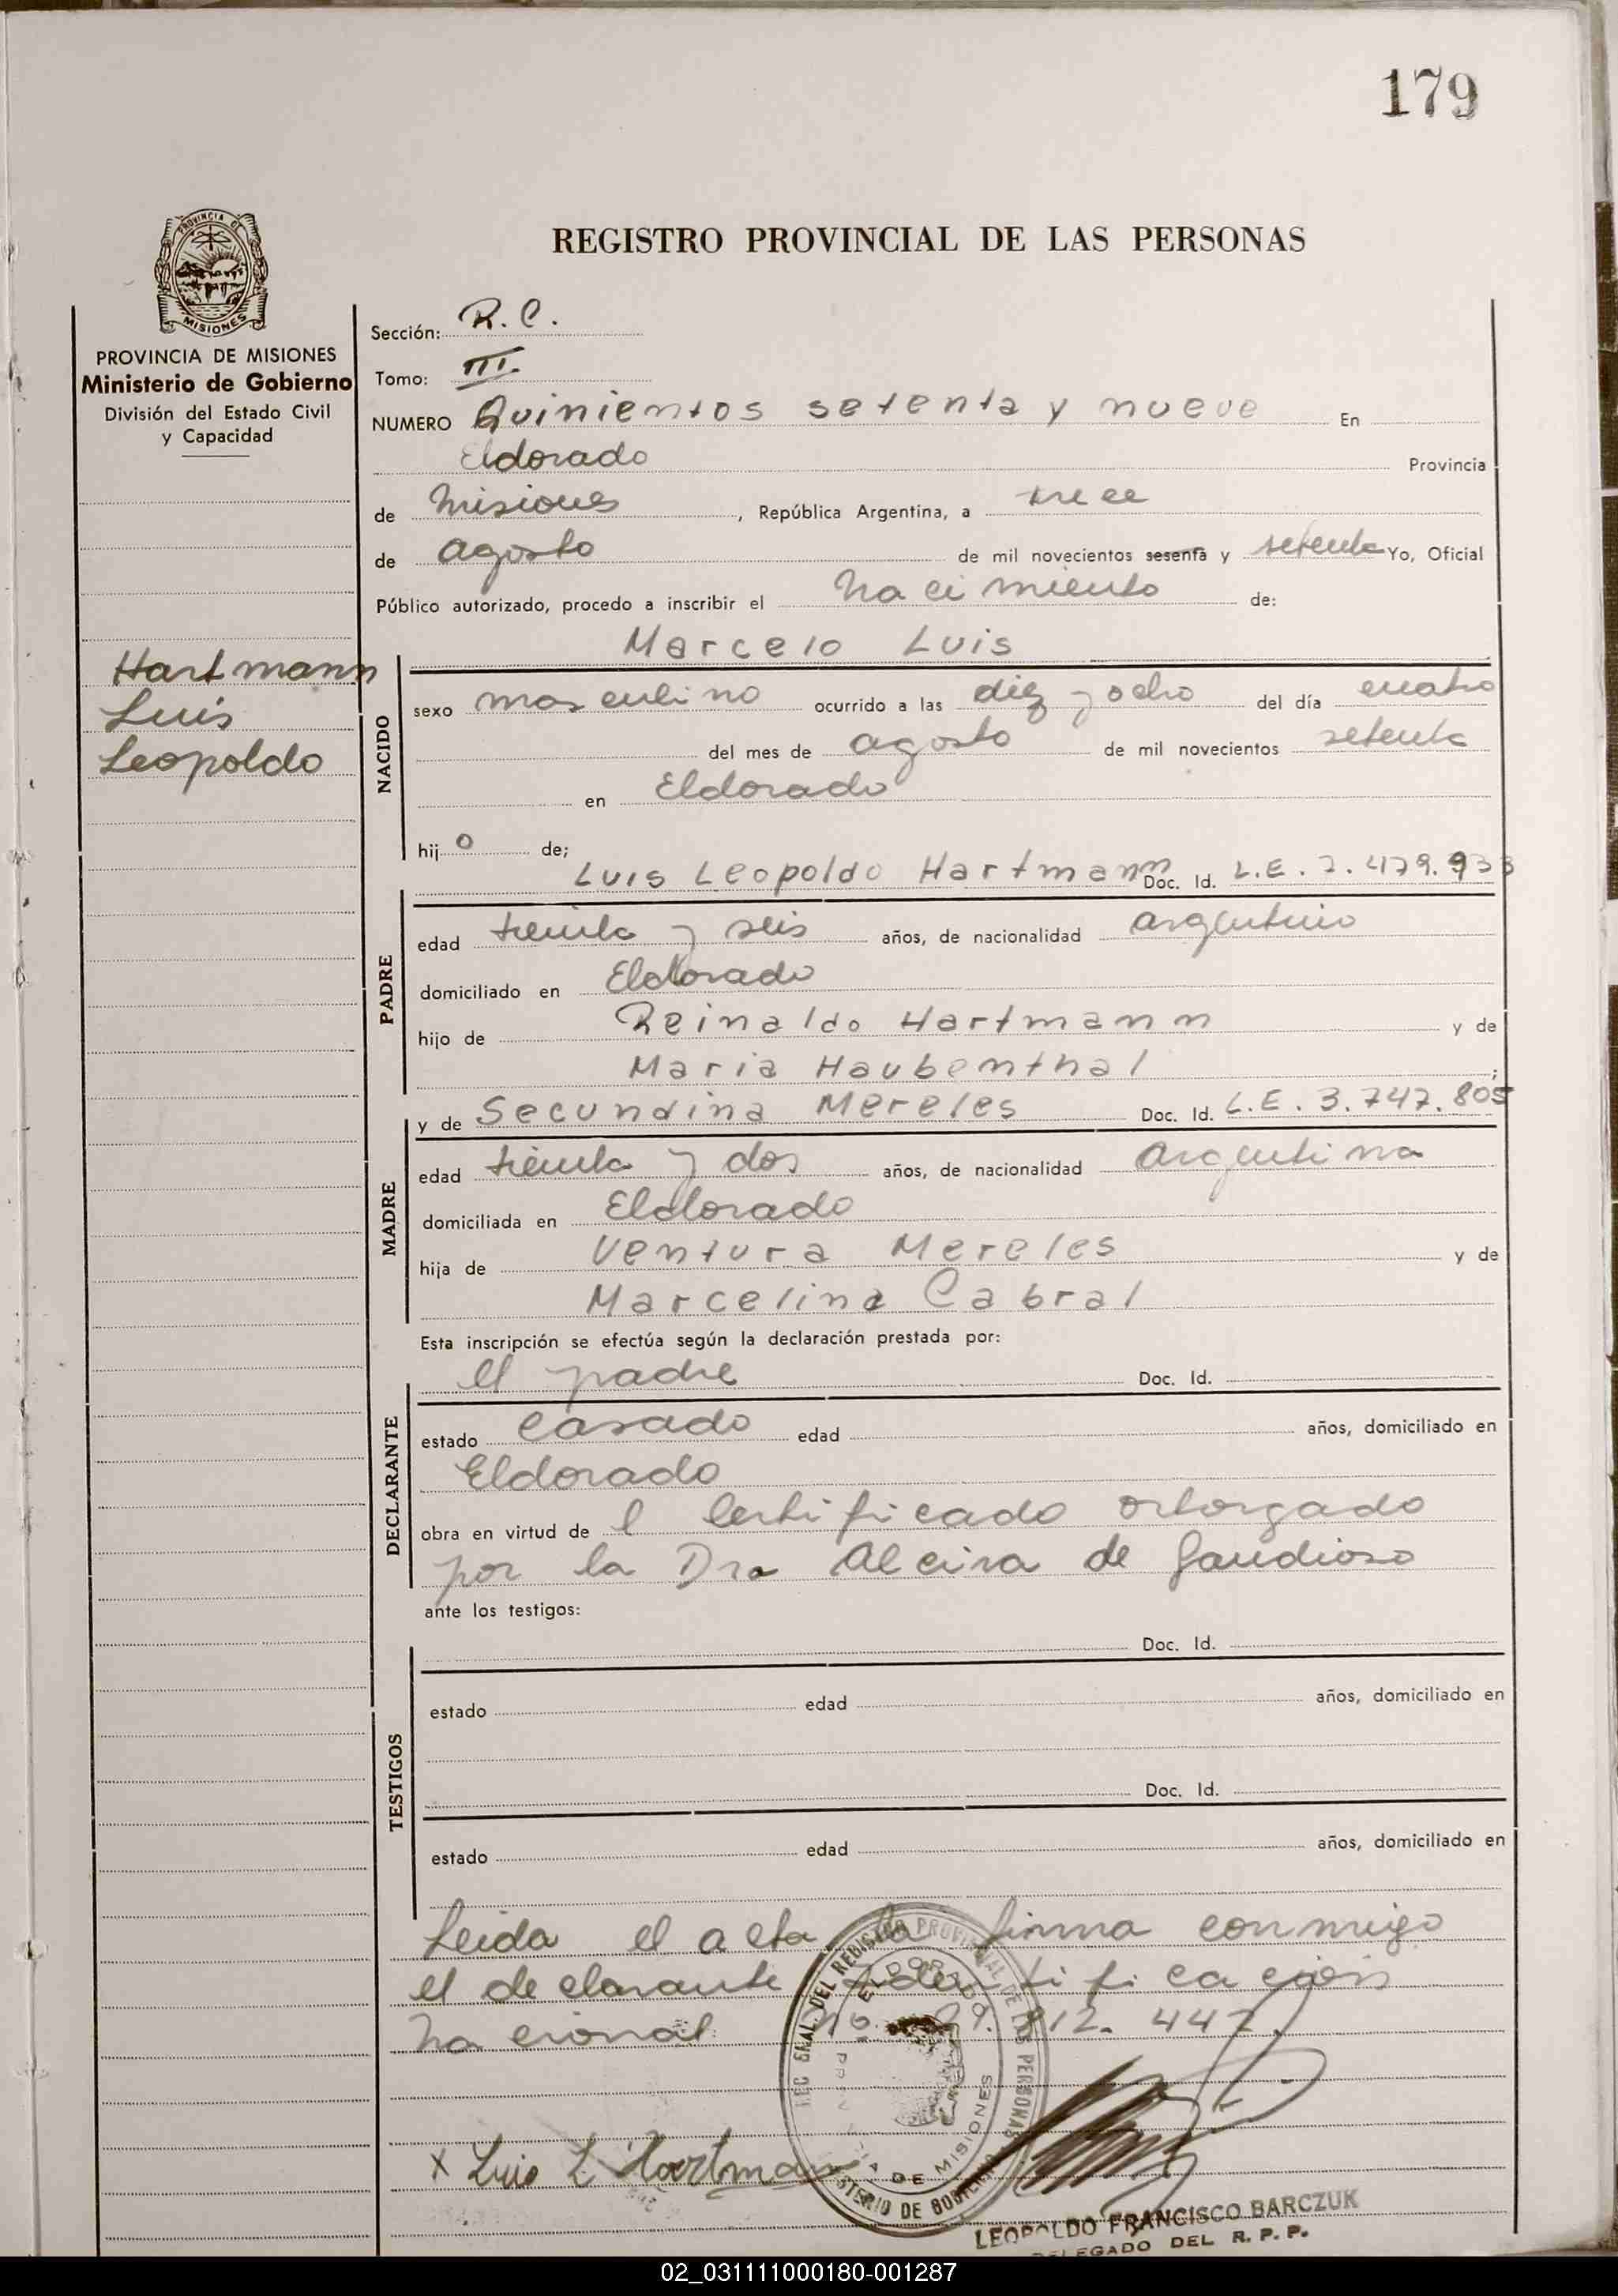 179
PROVINCIA DE
MISIONES
PROVINCIA DE MISIONES
Ministerio de Gobierno
División del Estado Civil
y Capacidad
Hartmann
Luis
Leopoldo
REGISTRO PROVINCIAL DE LAS PERSONAS
Sección: R. C.
Tomo: III.
NUMERO Quinientos setenta y nueve En
Eldorado Provincia
de Misiones, República Argentina, a trece
de agosto de mil novecientos sesenta y setenta Yo, Oficial
Público autorizado, procedo a inscribir el nacimiento de:
Marcelo Luis
NACIDO
sexo masculino ocurrido a las diez y ocho del día cuatro
del mes de agosto de mil novecientos setenta
en Eldorado
hijo de;
Luis Leopoldo Hartmann Doc. Id. L.E. 7.479.933
PADRE
edad treinta y seis años, de nacionalidad argentino
domiciliado en Eldorado
hijo de Reinaldo Hartmann y de
Maria Haubenthal;
y de Secundina Mereles Doc. Id. L.E. 3.747.805
MADRE
edad treinta y dos años, de nacionalidad argentina
domiciliada en Eldorado
hija de Ventura Mereles y de
Marcelina Cabral
Esta inscripción se efectúa según la declaración prestada por:
el padre Doc. Id.
DECLARANTE
estado casado edad años, domiciliado en
Eldorado
obra en virtud de l certificado ortorgado
por la Dra Alcira de Gaudioso
ante los testigos:
Doc. Id.
TESTIGOS
estado edad años, domiciliado en
Doc. Id.
estado edad años, domiciliado en
Leida el acta la firma conmigo
el declarante identificación
nacional no. 812. 447.
DEL REGISTRO PROVINCIAL DE LAS PERSONAS
ELDORADO
DE MISIONES
DE GOBIERNO
x Luis L. Hartmann
LEOPOLDO FRANCISCO BARCZUK
DELEGADO DEL R. P. P.
02_031111000180-001287